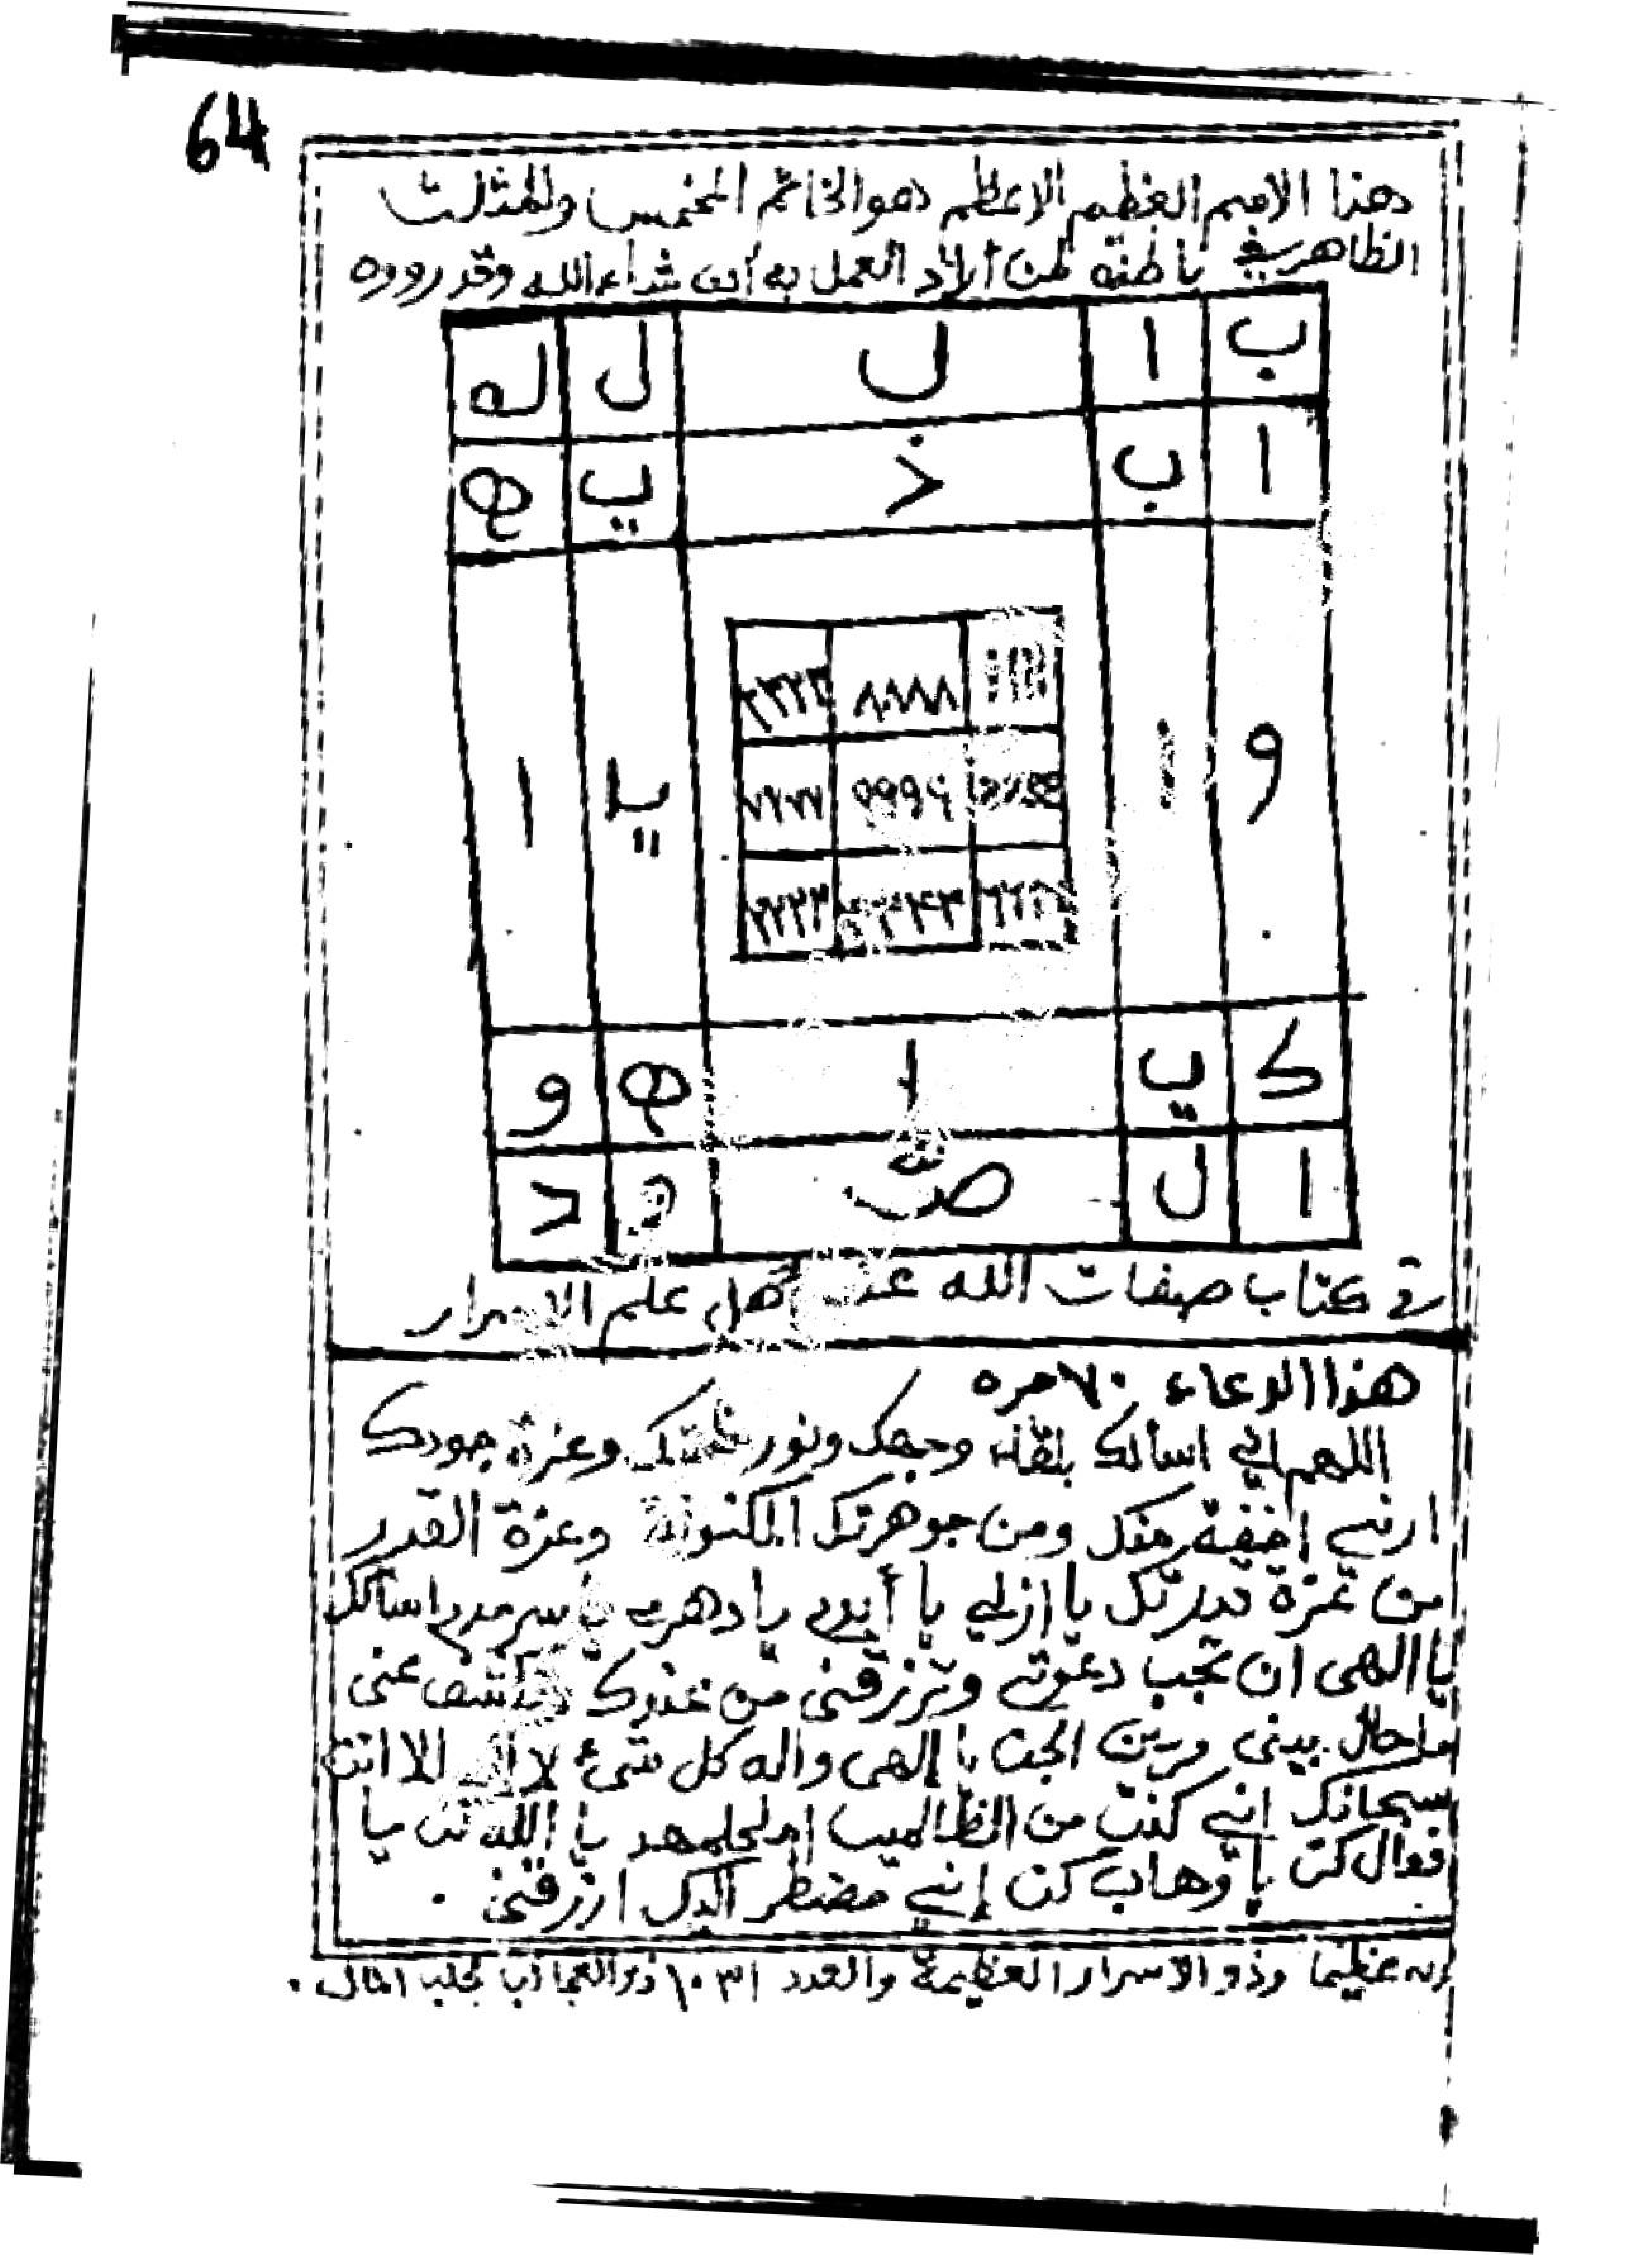 64
وهذا الاسم العظيم الاعظم وهو الخاتم المخمس والمثلث
الظاهر في باطنه لمن أراد العمل به ان شاء الله وقد
ب ا ل ل ك
ا ب ذ ي ه
و ا يا ا
٨٨٨٨
٩٩٩٩ ٧٧٧٧
ك ي ا ه و
ا ل د
في كتاب صفات الله عند اهل علم الاسرار
هذا الدعاء ٧٠ مره
اللهم اني اسالك بلقاء وجهك ونور وعزة جودك
ارني منك ومن جوهرتك المكنونة وعزة القدر
من عزة قدرتك يا ازلي يا أبدي يا دهري يا سرمدي اسالك
يا الهى ان تجب دعوتي وترزقنى من عندك وتكشف عنى
ما حال بينى وبين الجن يا الهى واله كل شىء لا اله الا انت
سبحانك اني كنت من الظالمين يا الله يا
فعال كن يا وهاب كن إني مضطر اليك ارزقنى .
عظيما وذو الاسرار العظيمة والعدد ١٠٣١ ذو العجائب لجلب المال .